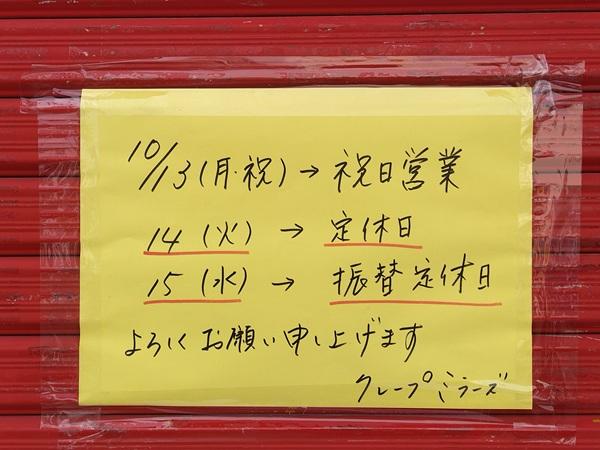 10/13(月・祝)→祝日営業
14(火)→定休日
15(水)→振替定休日
よろしくお願い申し上げます
クレープミラーズ